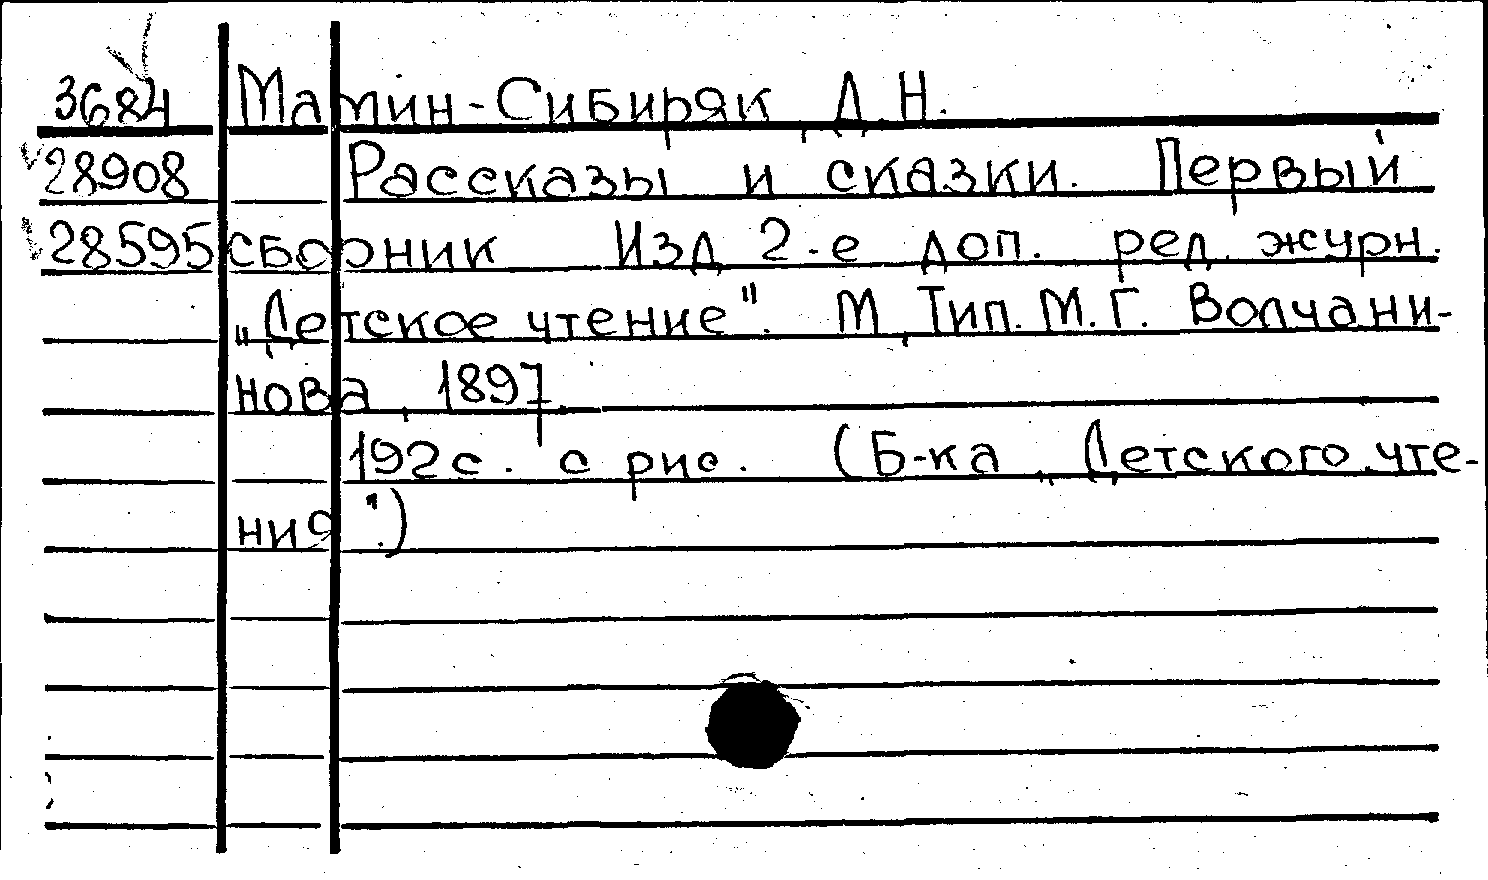 3684 Мамин-Сибиряк, Д.Н.
28908 Рассказы и сказки. Первый
28595 сборник Изд. 2-е доп. ред. журн.
„Детское чтение". М., Тип. М.Г. Волчани-
нова, 1897.
192с. с рис. (Б-ка „Детского чте-
ния".)